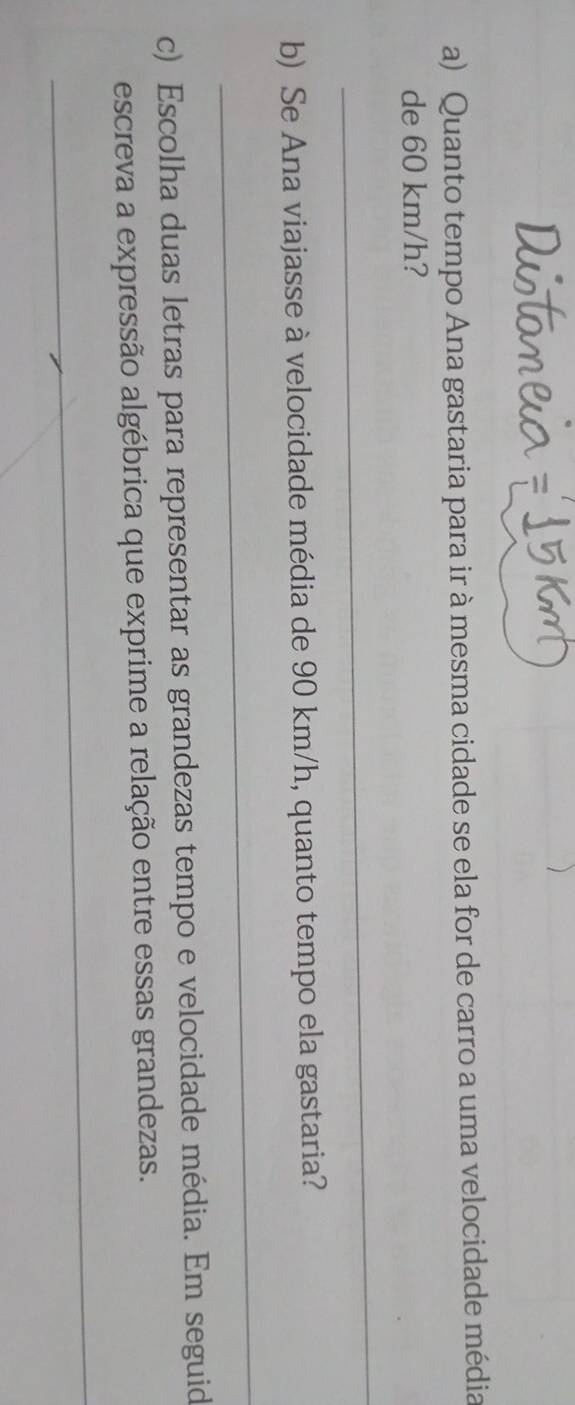 Distancia = 15 Km
a) Quanto tempo Ana gastaria para ir à mesma cidade se ela for de carro a uma velocidade média
de 60 km/h?
b) Se Ana viajasse à velocidade média de 90 km/h, quanto tempo ela gastaria?
c) Escolha duas letras para representar as grandezas tempo e velocidade média. Em seguid
escreva a expressão algébrica que exprime a relação entre essas grandezas.